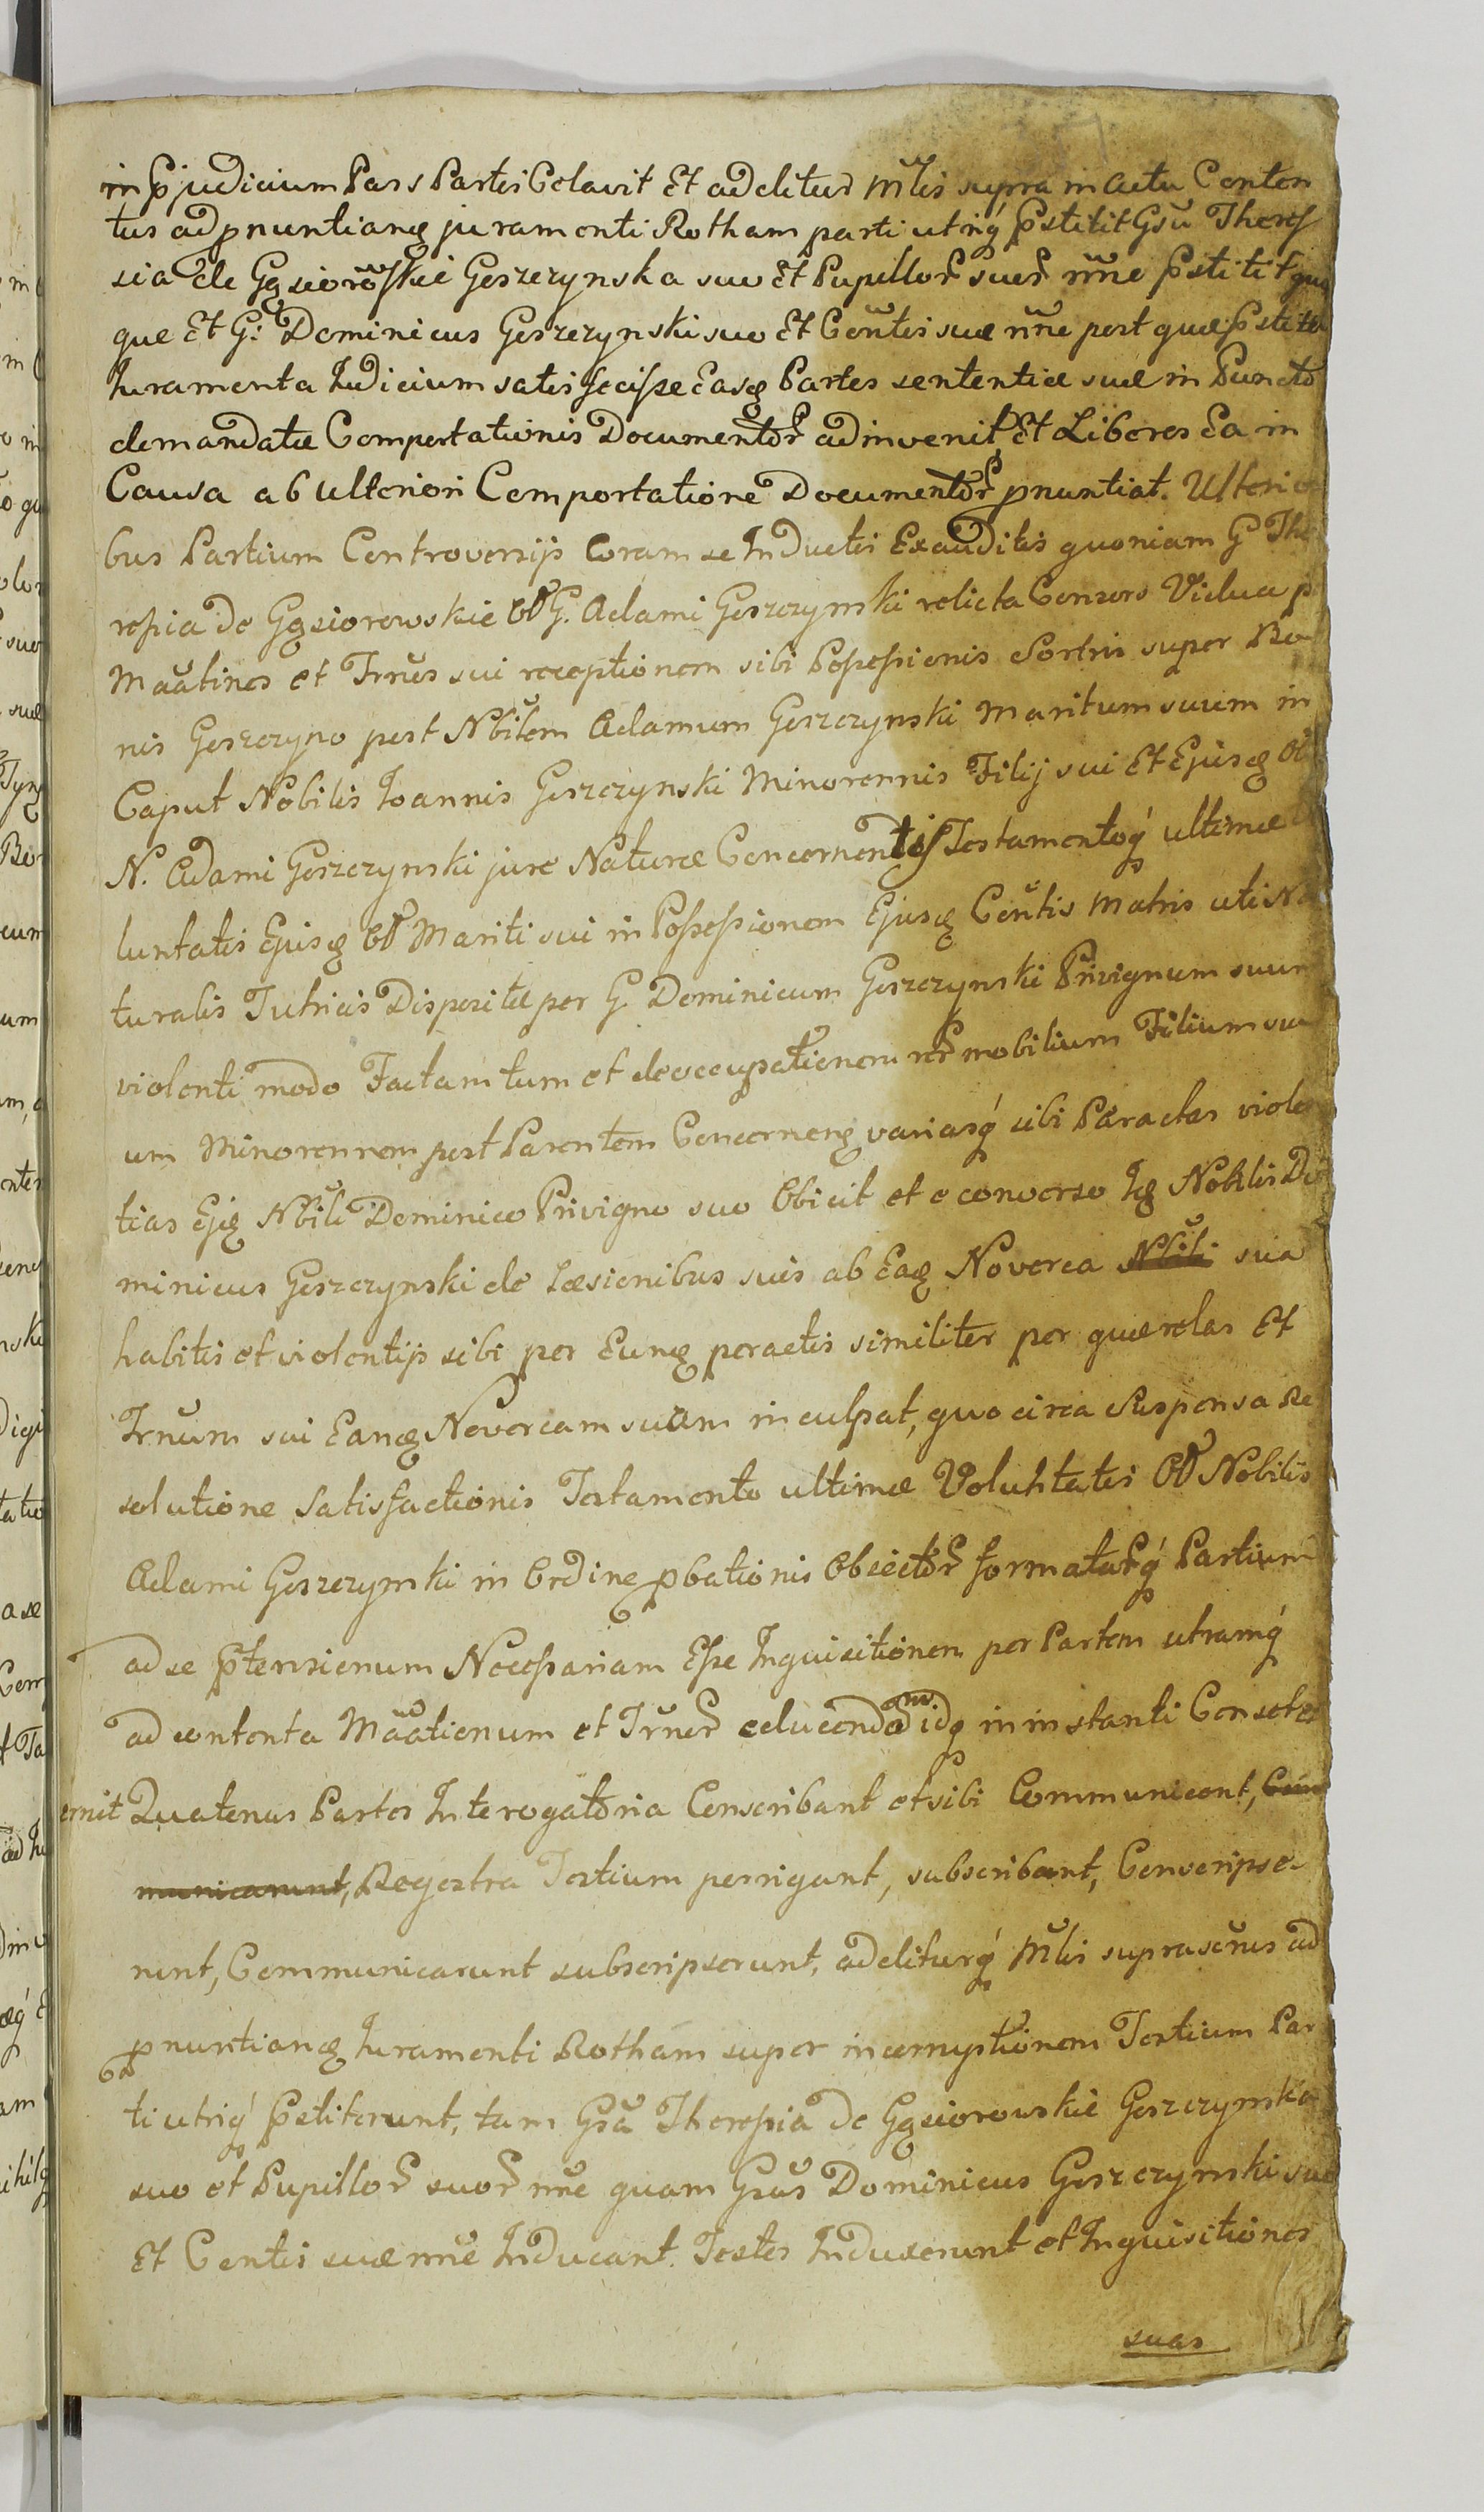 in Pjudicium Pars Partis Celavit Et additur Mlis supra in actu Conten
tus ad pnuntianɋ juramenti Rotham parti utriq́ Pstitit Gsu Theres
sia de Gąsiorōskie Goszczynska suo Et Pupillor suor nn̄e Pstitit
que Et G: Dominicus Goszczynski suo Et Cōntis suæ nn̄e post quæ Pstita
Juramenta Judicium satis fecisse Easɋ Partes sententiæ suæ in Puncto
demandatæ Comportationis Documentor adinvenit Et Liberos Ea in
Causa ab ulteriori Comportatione Documentor pnuntiat. Ulterio
bus Partium Controversijs Coram se Inductis Exauditis quoniam G The
ressia de Gąsiorowskie Ol G. Adami Goszczynski relicta Consors Vidua p
Maatines et Trnes sui receptionem sibi Possessionis Sortis super Bo
nis Goszczyno post Nbilem Adamum Goszczynski Maritum suum in
Caput Nobilis Joannis Goszczynski Minorennis Filij sui Et Ejusɋ Ol
N. Adami Goszczynski jure Naturæ Concernentis Testamentoq́ ultimæ
luntatis Ejusɋ Ol Mariti sui in Possessionem Ejusɋ Contis Matris uti Na
turalis Tutricis Dispositæ per G. Dominicum Goszczynski Privignum suum
violenti modo Factam tum et deoccupationem rer mobilium Filium su
um Minorennem post Parentem Concernenɋ variasq́ sibi Paractas violen
tias Ejɋ Nbili Dominico Privigno suo Obicit et e converso Iɋ Nobilis Do
minicus Goszczynski de Læsionibus suis ab Eaɋ Noverca Nbili sua
habitis et violentijs sibi per Eunɋ peractis similiter per querelas Et
Trnum sui Eanɋ Novercam suam inculpat, quo circa Responsa Re
solutione Satisfactionis Testamento ultimæ Voluntatis Ol Nobilis
Adami Goszczynski in Ordine pbationis Obiector formatarq́ Partium
ad se Ptensionum Necessariam Esse Inquisitionem per Partem utramq́
ad contenta Maationum et Trner educendam idɋ in instanti Consete
ernit Quatenus Partes Interogatoria Conscribant et sibi Communicent, Com
municarunt, Regestra Testium porrigant, subscribant, Conscripse-
runt, Communicarunt subscripserunt, additurq́ Mlis suprascrus ad
pnuntianɋ Juramenti Rotham super incorruptionem Testium Par
ti utriq́ Pstiterunt, tam Gsa Theressia de Gąsiorowskie Goszczynska
suo et Pupillor suor nn̄e quam Gsus Dominicus Goszczynski suo
Et Contis suæ nn̄e Inducant. Testes Induxerunt et Inquisitiones
suas